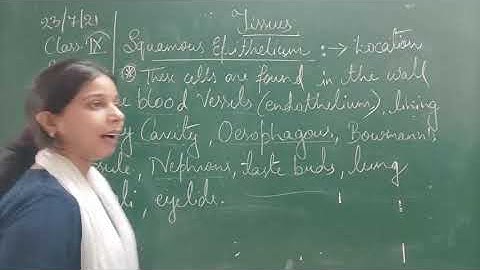 23/7/21 Tissues
Class: IX Squamous Epithelium :→ Location
These cells are found in the wall
blood vessels (endothelium), lining
Cavity, Oesophagous, Bowmann's
Nephrons, taste buds, lung
eyelids.